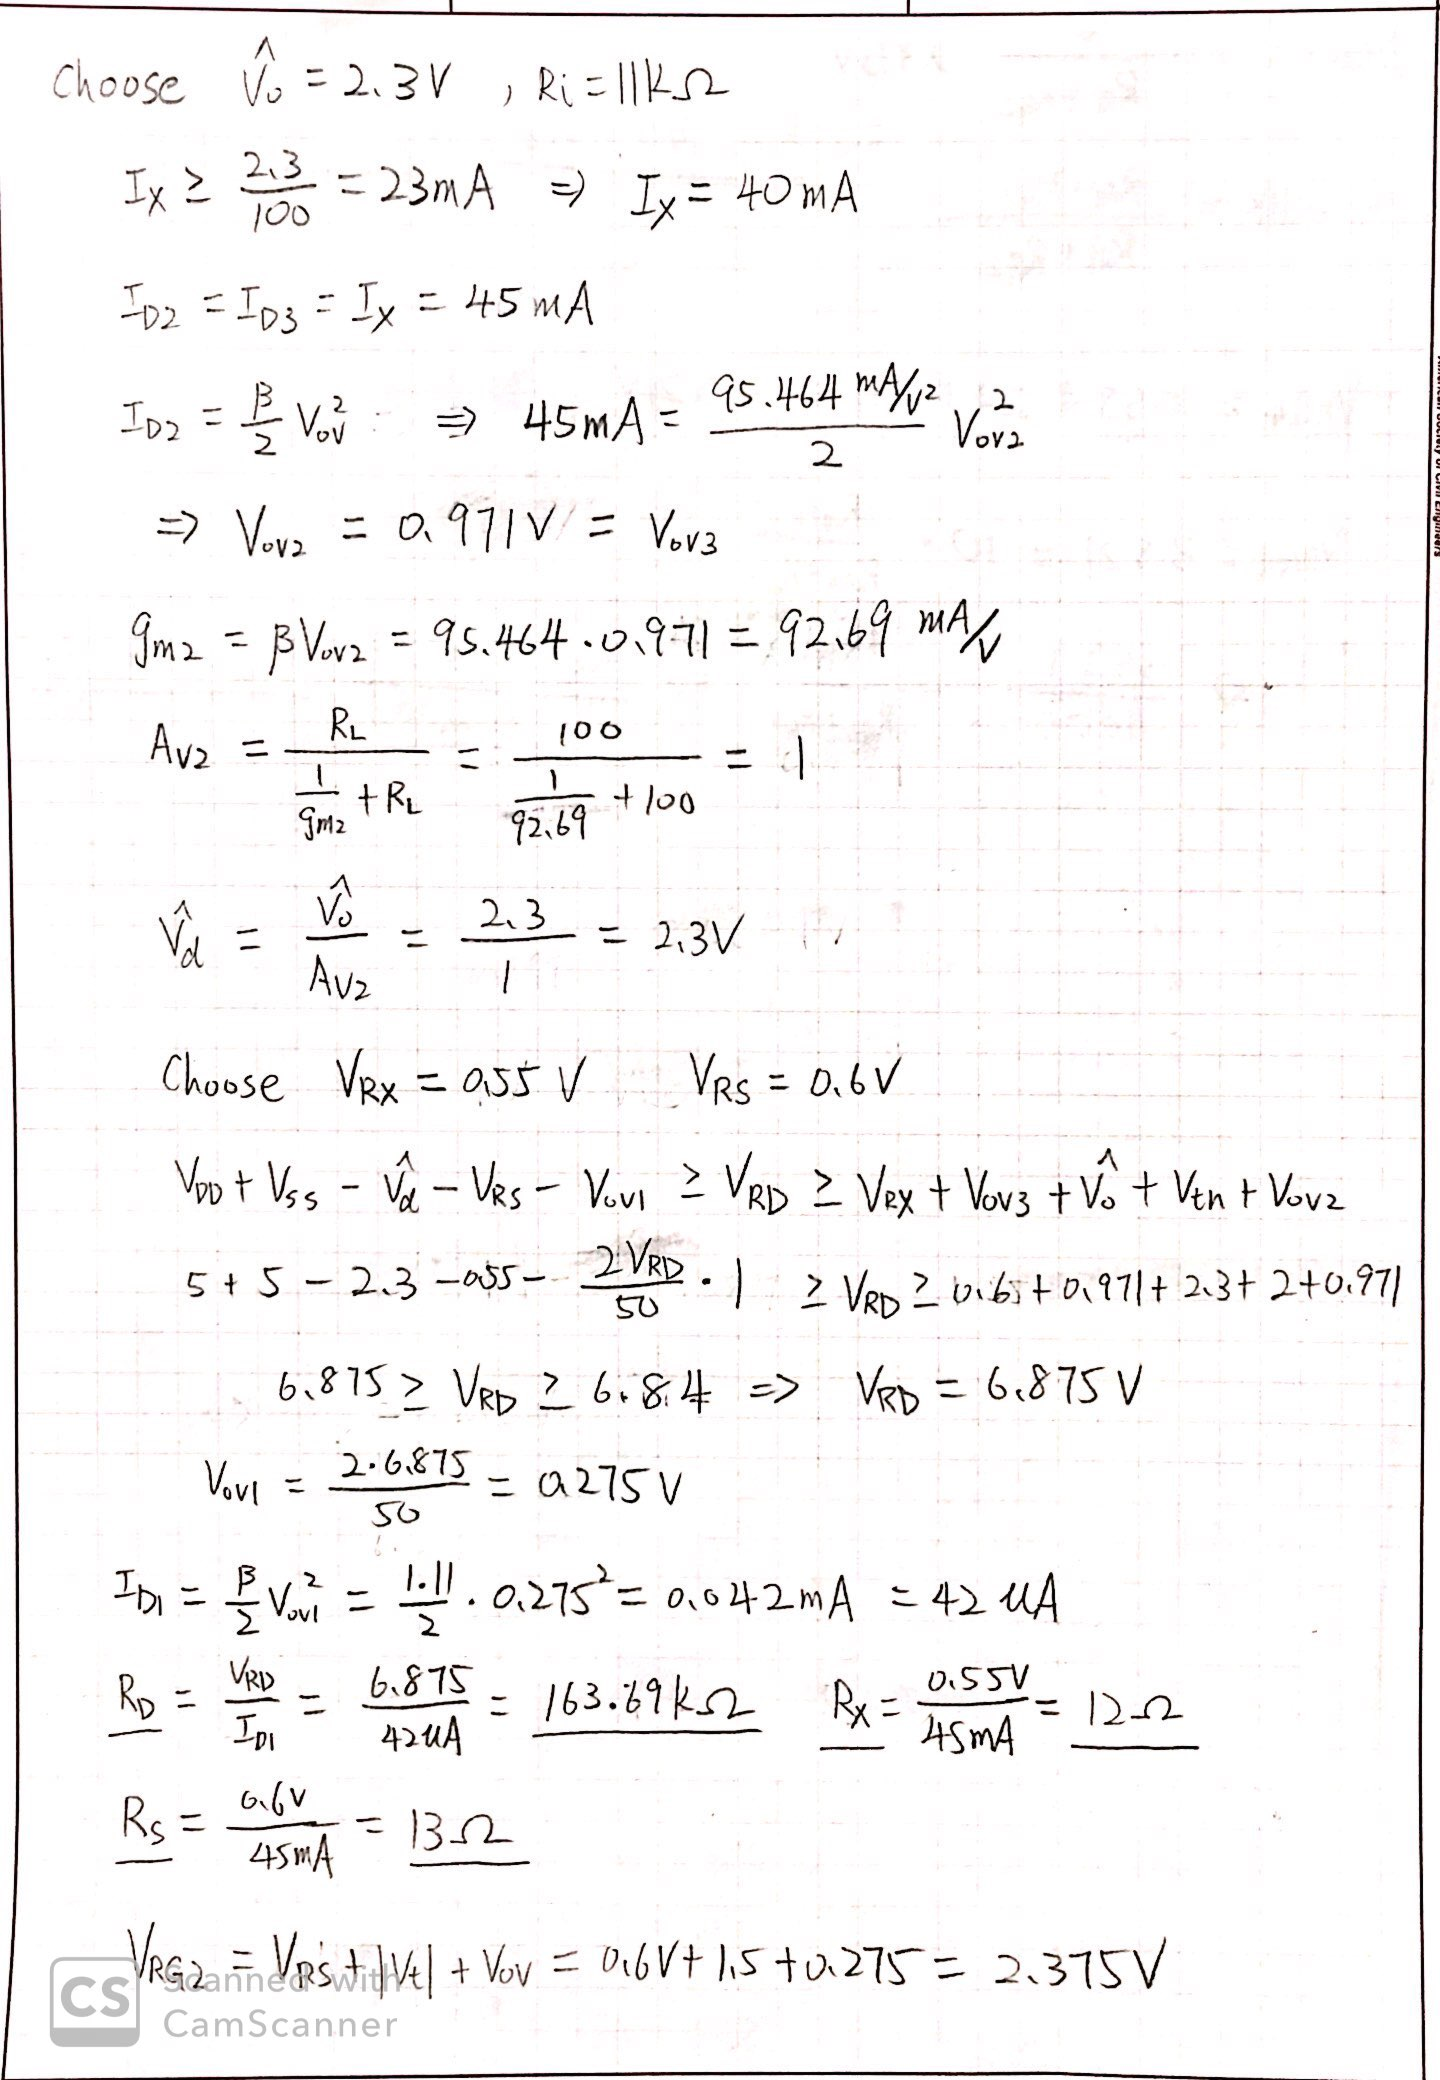 Choose V̂o = 2.3V , Ri = 11kΩ
Ix ≥ 2.3/100 = 23mA ⇒ Ix = 40mA
ID2 = ID3 = Ix = 45mA
ID2 = β/2 Vov² ⇒ 45mA = (95.464 mA/V²)/2 Vov2²
⇒ Vov2 = 0.971V = Vov3
gm2 = βVov2 = 95.464 · 0.971 = 92.69 mA/V
Av2 = RL/(1/gm2 + RL) = 100/(1/92.69 + 100) = 1
V̂d = V̂o/Av2 = 2.3/1 = 2.3V
Choose VRX = 0.55V VRS = 0.6V
VDD + VSS - V̂d - VRS - Vov1 ≥ VRD ≥ VRX + Vov3 + V̂o + Vtn + Vov2
5 + 5 - 2.3 - 0.55 - 2VRD/50 · 1 ≥ VRD ≥ 0.6 + 0.971 + 2.3 + 2 + 0.971
6.875 ≥ VRD ≥ 6.84 ⇒ VRD = 6.875V
Vov1 = 2·6.875/50 = 0.275V
ID1 = β/2 Vov1² = 1.11/2 · 0.275² = 0.042mA = 42uA
RD = VRD/ID1 = 6.875/42uA = 163.69kΩ Rx = 0.55V/45mA = 12Ω
RS = 0.6V/45mA = 13Ω
VRG2 = VRS + |Vt| + Vov = 0.6V + 1.5 + 0.275 = 2.375V
CS Scanned with
CamScanner